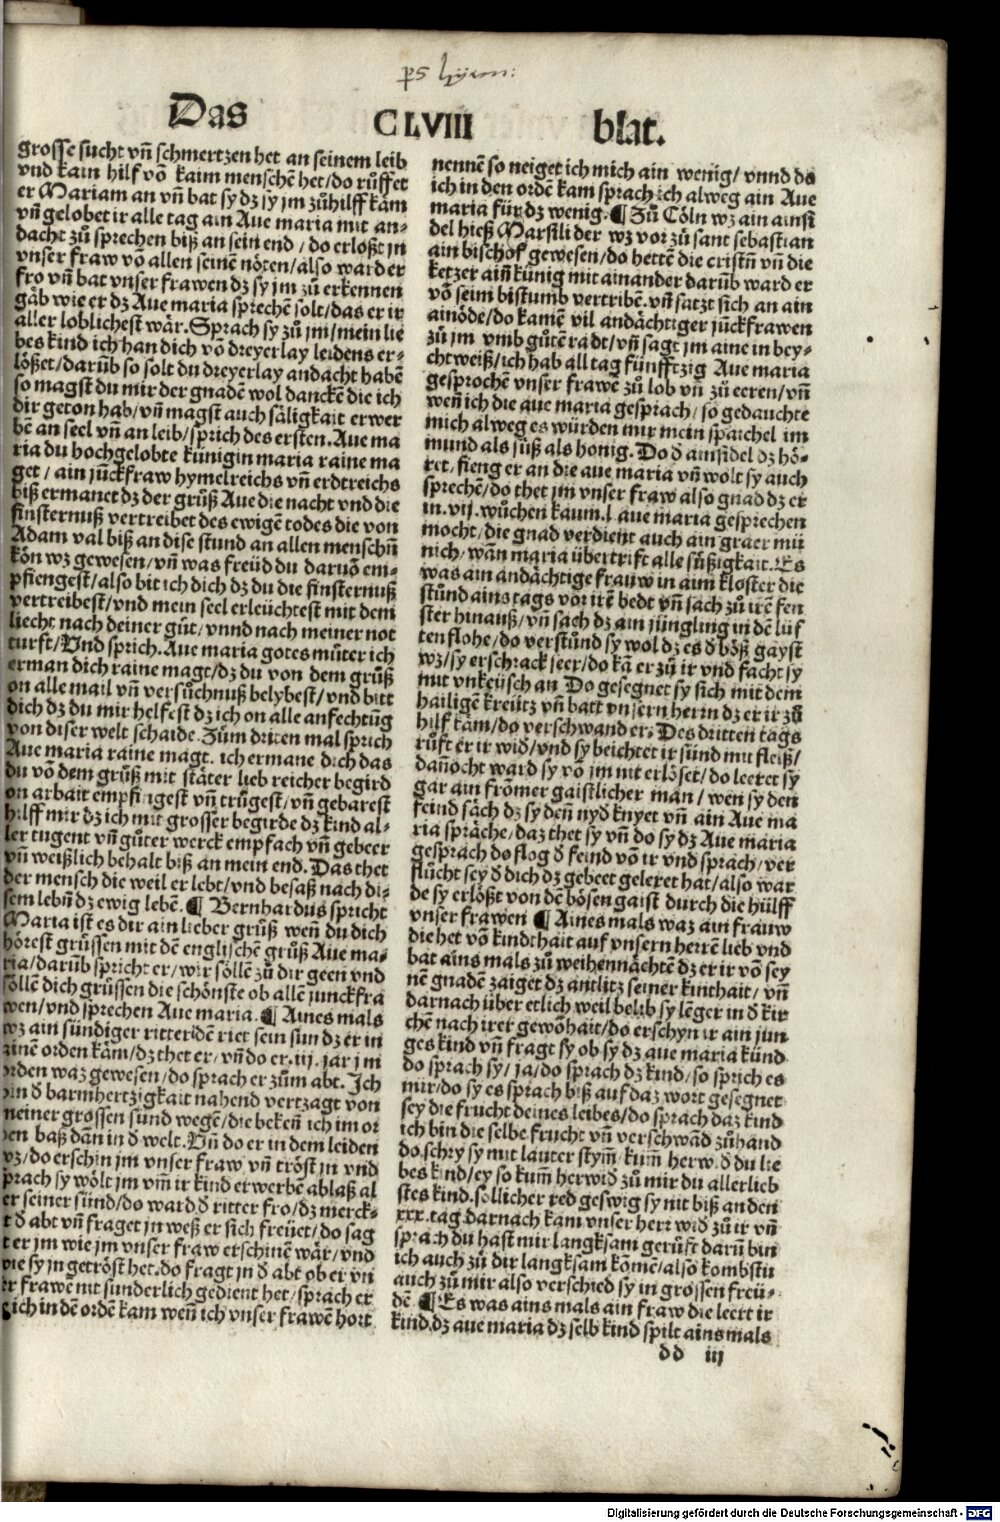 Das CLVIII blat.
grosse sucht vñ schmertzen het an seinem leib
vnd kain hilf võ kaim menschẽ het/do růffet
er Mariam an vñ bat sy dz sy jm zůhilff kãm
vñ gelobet ir alle tag ain Aue maria mit an-
dacht zů sprechen biß an sein end/do erloßt jn
vnser fraw võ allen seinẽ nöten/also ward er
fro vñ bat vnser frawen dz sy jm zů erkennen
gäb wie er dz Aue maria sprechẽ solt/das er ir
aller loblichest wär. Sprach sy zů jm/mein lie
bes kind ich han dich võ dreyerlay leidens er-
lößet/darũb so solt du dreyerlay andacht habẽ
so magst du mir der gnadẽ wol danckẽ die ich
dir geton hab/vñ magst auch säligkait erwer
bẽ an seel vñ an leib/sprich des ersten. Aue ma
ria du hochgelobte künigin maria raine ma
get/ain jũckfraw hymelreichs vñ erdtreichs
biß ermanet dz der grůß Aue die nacht vnd die
finsternuß vertreibet des ewigẽ todes die von
Adam val biß an dise stund an allen menschñ
kõn wz gewesen/vñ was freüd du daruõ em-
pfiengest/also bit ich dich dz du die finsternuß
vertreibest/vnd mein seel erleüchtest mit dem
liecht nach deiner güt/vnnd nach meiner not
turft/Vnd sprich. Aue maria gotes můter ich
erman dich raine magt/dz du von dem grůß
on alle mail vñ versůchnuß belybest/vnd bitt
dich dz du mir helfest dz ich on alle anfechtũg
von diser welt schaide. Zům dritten mal sprich
Aue maria raine magt. ich ermane dich das
du võ dem grůß mit stäter lieb reicher begird
on arbait empfiengest vñ trůgest/vñ gebarest
hilff mir dz ich mit grosser begirde dz kind al-
ler tugent vñ gůter werck empfach vñ gebeer
vñ weißlich behalt biß an mein end. Das thet
der mensch die weil er lebt/vnd besaß nach di-
sem lebñ dz ewig lebẽ. ¶ Bernhardus spricht
Maria ist es dir ain lieber grůß weñ du dich
hörest grüssen mit dẽ englischẽ grůß Aue ma-
ria/darũb spricht er/wir söllẽ zů dir geen vnd
söllẽ dich grüssen die schönste ob allẽ junckfra
wen/vnd sprechen Aue maria. ¶ Aines mals
wz ain sündiger ritter/dẽ riet sein sun dz er in
ainẽ orden käm/dz thet er/vñ do er .iij. jar jm
orden waz gewesen/do sprach er zům abt. Ich
bin ð barmhertzigkait nahend vertzagt von
meiner grossen sünd wegẽ/die bekeñ ich im or
den baß dãn in ð welt. Vñ do er in dem leiden
wz/do erschin jm vnser fraw vñ tröst jn vnd
sprach sy wölt jm vm̃ ir kind erwerbẽ ablaß al
er seiner sünd/do ward ð ritter fro/dz merck-
t ð abt vñ fraget jn weß er sich freüet/do sag
t er jm wie jm vnser fraw erschinẽ wär/vnd
wie sy jn getröst het. do fragt jn ð abt ob er vn
er frawẽ nit sunderlich gedient het/sprach er
ich in dẽ ordẽ kam weñ ich vnser frawẽ hort
nennẽ so neiget ich mich ain wenig/vnnd do
ich in den ordẽ kam sprach ich alweg ain Aue
maria für dz wenig. ¶ Zů Cöln wz ain ainsi
del hieß Marsili der wz vor zů sant sebastian
ain bischof gewesen/do hettẽ die cristñ vñ die
ketzer aiñ künig mit ainander darũb ward er
võ seim bistumb vertribẽ. vñ satzt sich an ain
ainöde/do kamẽ vil andächtiger jũckfrawen
zů jm vmb gůtẽ radt/vñ sagt jm aine in bey-
chtweiß/ich hab all tag fünfftzig Aue maria
gesprochẽ vnser frawẽ zů lob vñ zů eeren/vñ
weñ ich die aue maria gesprach/so gedauchte
mich alweg es würden mir mein spaichel im
mund als süß als honig. Do ð ainsidel dz hö-
ret/fieng er an die aue maria vñ wolt sy auch
sprechẽ/do thet jm vnser fraw also gnad dz er
in .vij. wůchen kaum .l. aue maria gesprechen
mocht/die gnad verdient auch ain graer mü
nich/wãn maria übertrift alle süßigkait. Es
was ain andächtige frauw in aim kloster die
stůnd ains tags vor irẽ bedt vñ sach zů irẽ fen
ster hinauß/vñ sach dz ain jüngling in dẽ lüf
ten flohe/do verstůnd sy wol dz es ð böß gayst
wz/sy erschrack seer/do kã er zů ir vnd facht sy
mit vnkeüsch an. Do gesegnet sy sich mit dem
hailigẽ kreütz vñ batt vnsern herrn dz er ir zů
hilf käm/do verschwand er. Des dritten tags
růft er ir wið/vnd sy beichtet ir sünd mit fleiß/
dañocht ward sy võ jm nit erlöset/do leeret sy
gar ain frõmer gaistlicher man/wen sy den
feind säch dz sy deñ nyð knyet vñ ain Aue ma
ria spräche/daz thet sy vñ do sy dz Aue maria
gesprach do flog ð feind võ ir vnd sprach/ver
flůcht sey ð dich dz gebeet geleret hat/also war
de sy erlößt von dẽ bösen gaist durch die hülff
vnser frawen ¶ Aines mals waz ain frauw
die het võ kindthait auf vnsern herrẽ lieb vnd
bat ains mals zů weihennächtẽ dz er ir võ sey
nẽ gnadẽ zaiget dz antlitz seiner kinthait/vñ
darnach über etlich weil belib sy lẽger in ð kir
chẽ nach irer gewõhait/do erschyn ir ain jun
ges kind vñ fragt sy ob sy dz aue maria künd
do sprach sy/ja/do sprach dz kind/so sprich es
mir/do sy es sprach biß auf daz wort gesegnet
sey die frucht deines leibes/do sprach daz kind
ich bin die selbe frucht vñ verschwãd zůhand
do schry sy mit lauter stym̃/kum̃ herwið du lie
bes kind/ey so kum̃ herwið zů mir du allerlieb
stes kind. söllicher red geswig sy nit biß an den
xxx. tag darnach kam vnser herr wið zů ir vñ
sprach du hast mir langksam gerůft darũ bin
ich auch zů dir langksam kõmẽ/also kombstu
auch zů mir also verschied sy in grossen freü-
dẽ. ¶ Es was ains mals ain fraw die leert ir
kind dz aue maria dz selb kind spilt ains mals
dd iij
Digitalisierung gefördert durch die Deutsche Forschungsgemeinschaft - DFG